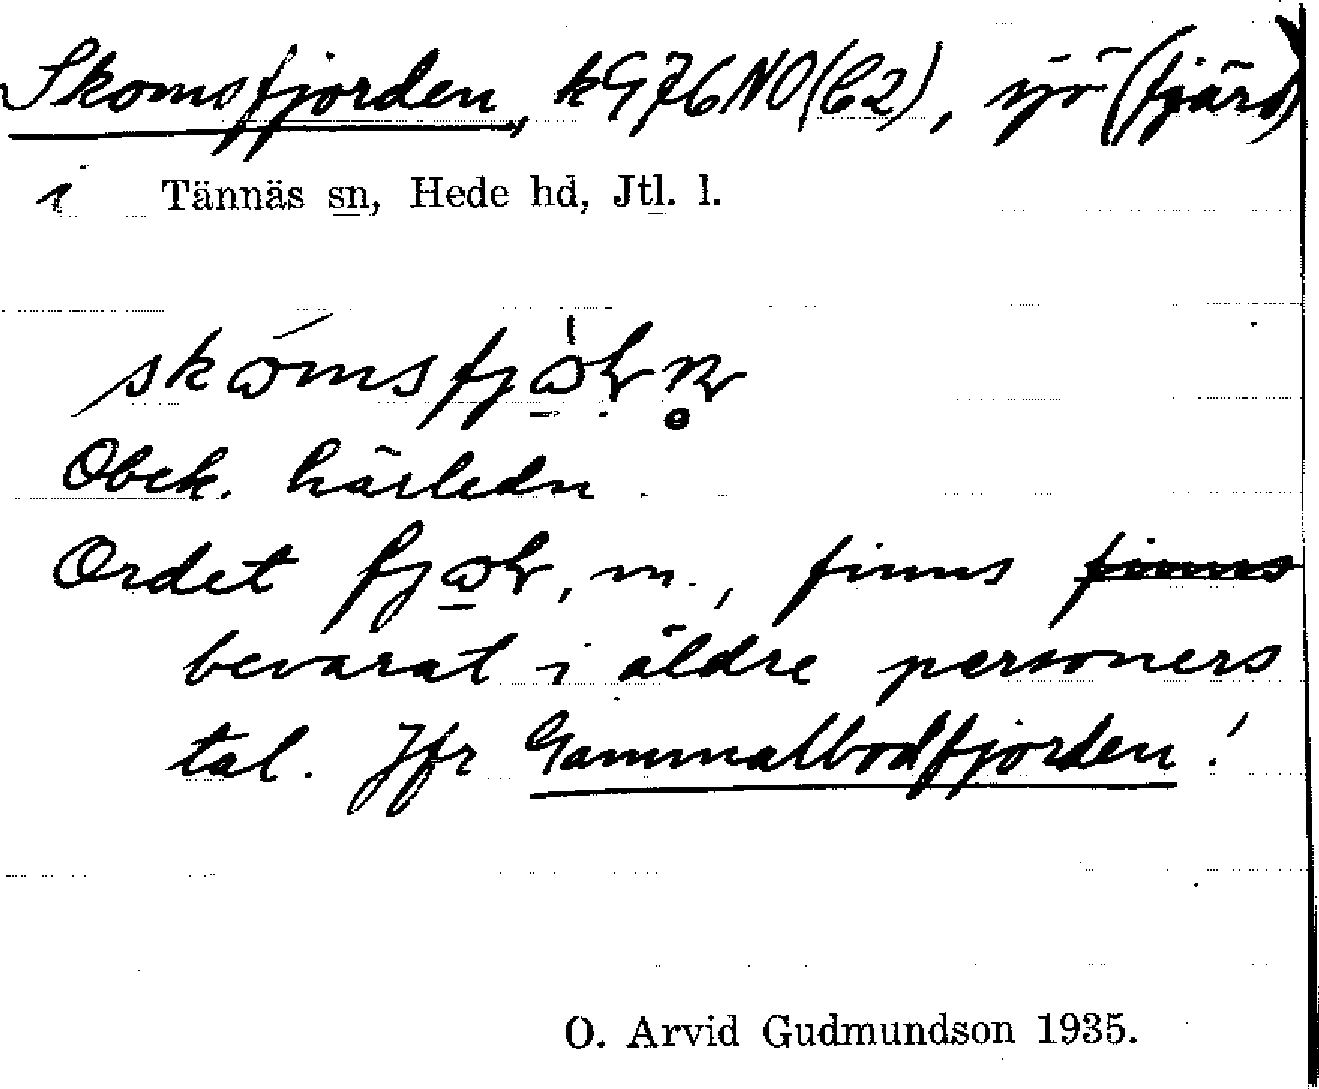 Skomsfjorden, kG76NO(C2), sjö (fjärd)
i Tännäs sn, Hede hd, Jtl. l.
Obek. härledn.
Ordet, m., finns finns
bevarat i äldre personers
tal. Jfr Gammalbodfjorden!
O. Arvid Gudmundson 1935.